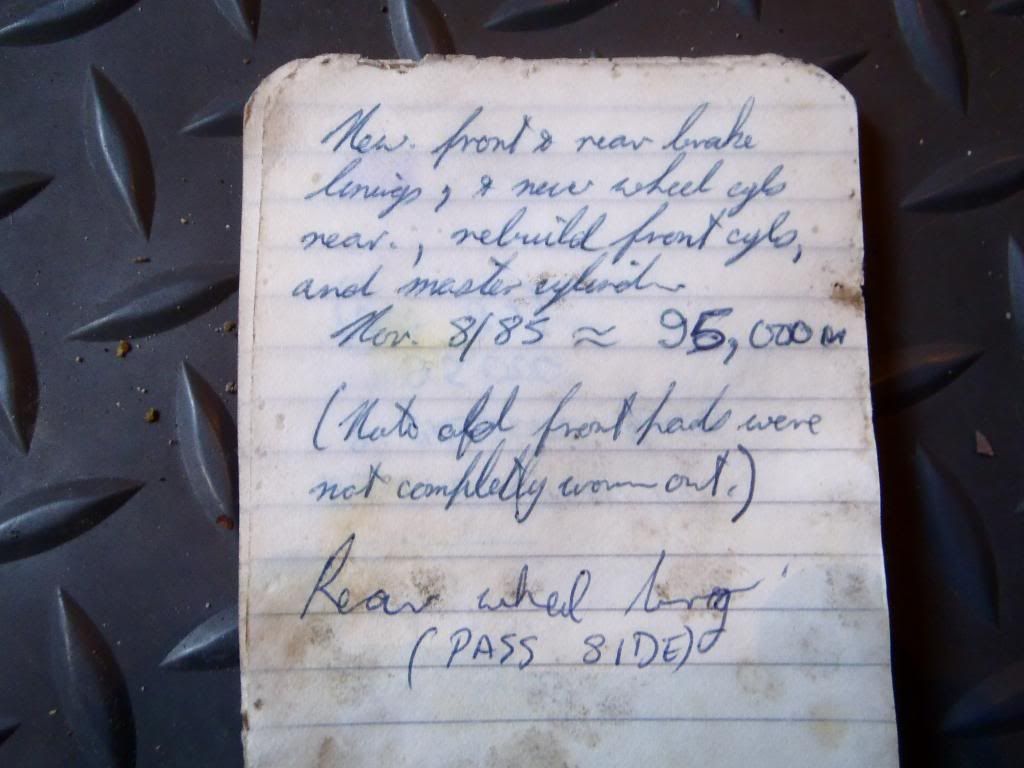 New. front & rear brake
linings, & new wheel cyls
rear., rebuild front cyls,
and master cylinder
Nov. 8/85 ≈ 95,000 m
(Note old front pads were
not completly worn out.)
Rear wheel brng
(PASS SIDE)